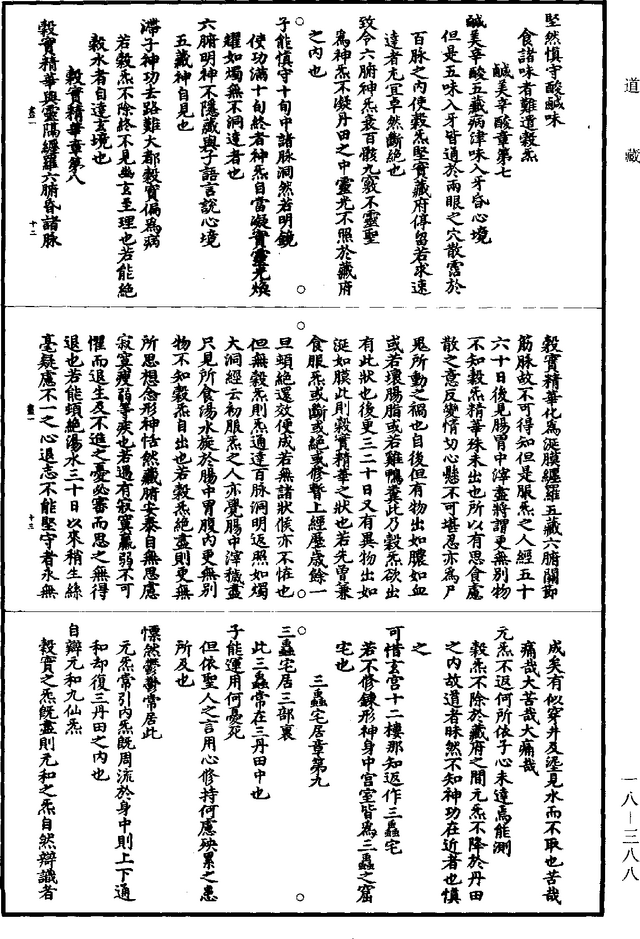 道藏
堅然慎守酸鹹味
食諸味者難遣穀炁
鹹美辛酸章第七
鹹美辛酸五藏病津味入牙昏心境
但是五味入牙皆通於兩眼之穴散霑於
百脉之内使穀炁堅實藏府停留若求速
達者尤宜卓然斷絶也
致令六腑神炁衰百骸九竅不靈聖
爲神炁不凝丹田之中靈光不照於藏府
之内也
子能慎守十旬中諸脉洞然若明鏡
使功滿十旬終者神炁自當凝實靈光煥
耀如燭無不洞達者也
六腑明神不隱藏與子語言說心境
五藏神自見也
滯子神功去路難大都穀實偏爲病
若穀炁不除終不見幽玄至理也若能絶
穀水者自達玄境也
穀實精華章第八
穀實精華與靈隔纏羅六腑昏諸脉
盡一
十二
穀實精華化爲涎膜纏羅五藏六腑關節
筋脉故不可得知但是服炁之人經五十
六十日後見腸胃中滓盡將謂更無别物
不知穀炁精華殊未出也所以有思食處
散之意反變情切心懸不可堪忍亦爲尸
鬼所動之禍也自後但有物出如膿如血
或若壞腸脂或若雞鴨糞此乃穀炁欲出
有此狀也後更三二十日又有異物出如
涎如膜此則穀實精華之狀也若先曾兼
食服炁或斷或絶或修暫上經歷歲餘一
旦頓絶還效便成若無諸狀候亦不恠也
但無穀炁則炁通達百脉洞明返照如燭
大洞經云初服炁之人亦覺腸中滓穢盡
只見所食湯水旋於腸中胃腹内更無别
物不知穀炁自出也若穀炁絶盡則更無
所思想念形神恬然藏腑安泰自無思慮
寂寞瘦弱等疾也若遇有寂寞羸弱不可
懼而退生及不進之憂必審而思之無得
退也若能頓絶湯水三十日以來稍生絲
毫疑慮不一之心退志不能堅守者永無
盡一
十三
成矣有似穿井及埿見水而不取也苦哉
痛哉大苦哉大痛哉
元炁不返何所依子心未達焉能測
穀炁不除於藏府之間元炁不降於丹田
之内故道者昧然不知神功在近者也慎
之
可惜玄宫十二樓那知返作三蟲宅
若不修鍊形神身中宫室皆爲三蟲之窟
宅也
三蟲宅居章第九
三蟲宅居三部裏
此三蟲常在三丹田中也
子能運用何憂死
但依聖人之言用心修持何慮殃累之患
所及也
慓然鬱鬱常居此
元炁常引内炁既周流於身中則上下通
和却復三丹田之内也
自辯元和九仙炁
穀實之炁既盡則元和之炁自然辯識者
一八—三八八